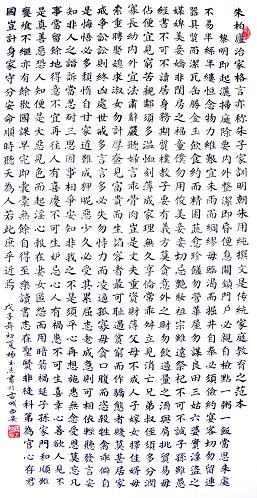 朱柏廬治家格言亦稱朱子家訓明朝朱用純撰文是傳統家庭教育之范本
黎明即起灑掃庭除要内外整潔既昏便息關鎖門户必親自檢點一粥一飯當思來處
不易半絲半縷恒念物力維艱宜未雨而綢繆毋臨渴而掘井自奉必須儉約宴客切勿留連
器具質而潔瓦缶勝金玉飲食約而精園蔬愈珍饈勿營華屋勿謀良田三姑六婆實淫盗之
媒婢美妾嬌非閨房之福童僕勿用俊美妻妾切忌艷妝祖宗雖遠祭祀不可不誠子孫雖愚
經書不可不讀居身務期質樸教子要有義方勿貪意外之財勿飲過量之酒與肩挑貿易毋
佔便宜見窮苦親鄰須多温恤刻薄成家理無久享倫常乖舛立見消亡兄弟叔侄須分多潤
寡長幼内外宜法肅辭嚴聽婦言乖骨肉豈是丈夫重資財薄父母不成人子嫁女擇佳婿毋
索重聘娶媳求淑女勿計厚奩見富貴而生諂容者最可耻遇貧窮而作驕態者賤莫甚居家
戒争訟訟則終凶處世戒多言言多必失勿恃勢力而凌逼孤寡毋貪口腹而恣殺牲禽乖僻自
是悔悟必多頽惰自甘家道難成狎昵惡少久必受其累屈志老成急則可相依輕聽發言安
知非人之譖訴當忍耐三思因事相争安知非我之不是須平心再想施惠無念受恩莫忘凡
事當留餘地得意不宜再往人有喜慶不可生妒忌心人有禍患不可生喜幸心善欲人見不
是真善惡恐人知便是大惡見色而起淫心報在妻女匿怨而用暗箭禍延子孫家門和順雖
饔飧不繼亦有餘歡國課早完即囊橐無餘自得至樂讀書志在聖賢非徒科第爲官心存君
國豈計身家守分安命順時聽天爲人若此庶乎近焉
戊子年初夏